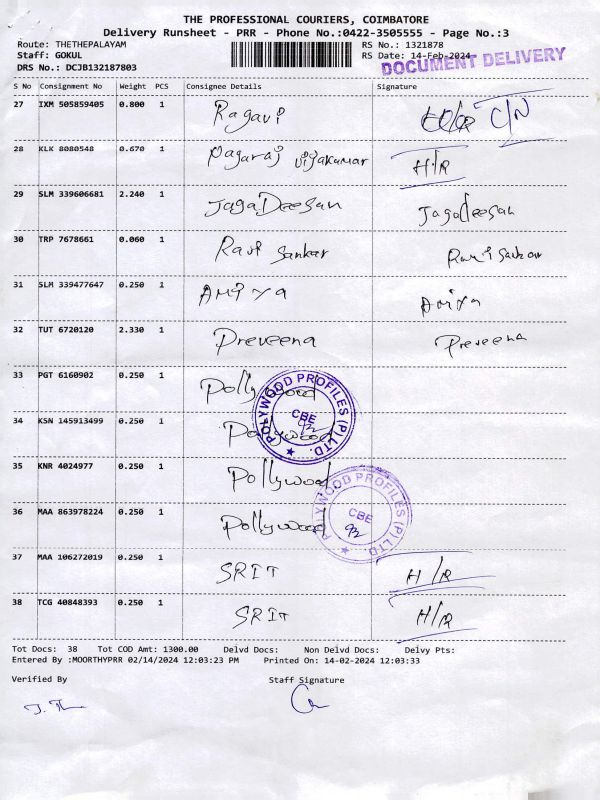 THE PROFESSIONAL COURIERS, COIMBATORE
Delivery Runsheet - PRR - Phone No.:0422-3505555 - Page No.:3
Route: THETHEPALAYAM RS No.: 1321878
Staff: GOKUL RS Date: 14-Feb-2024
DRS No.: DCJB132187803
DOCUMENT DELIVERY
S No Consignment No Weight PCS Consignee Details Signature
27 IXM 505859405 0.800 1 Ragavi C/N
28 KLK 8080548 0.670 1 Nagaraj Vijayakumar H/R
29 SLM 339606681 2.240 1 JagaDeesan Jagadeesan
30 TRP 7678661 0.060 1 Ravi Sankar Ravi Sankar
31 SLM 339477647 0.250 1 Amiya Amiya
32 TUT 6720120 2.330 1 Preveena Preveena
33 PGT 6160902 0.250 1 Pollywood
34 KSN 145913499 0.250 1 Pollywood
35 KNR 4024977 0.250 1 Pollywood
36 MAA 863978224 0.250 1 Pollywood
POLYWOOD PROFILES (P) LTD. CBE
POLYWOOD PROFILES (P) LTD. CBE
37 MAA 106272019 0.250 1 SRIT H/R
38 TCG 40848393 0.250 1 SRIT H/R
Tot Docs: 38 Tot COD Amt: 1300.00 Delvd Docs: Non Delvd Docs: Delvy Pts:
Entered By :MOORTHYPRR 02/14/2024 12:03:23 PM Printed On: 14-02-2024 12:03:33
Verified By Staff Signature